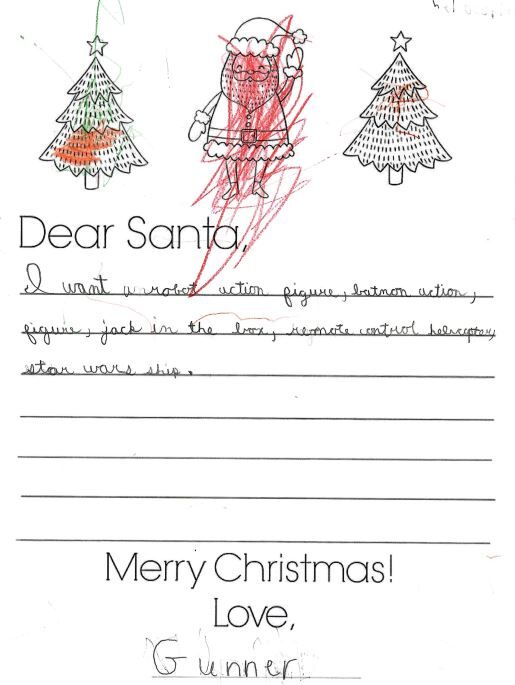 Dear Santa,
I want a robot action figure, batmon action,
figure, jack in the box, remote control helicoptor,
star wars ship.
Merry Christmas!
Love,
Gunner